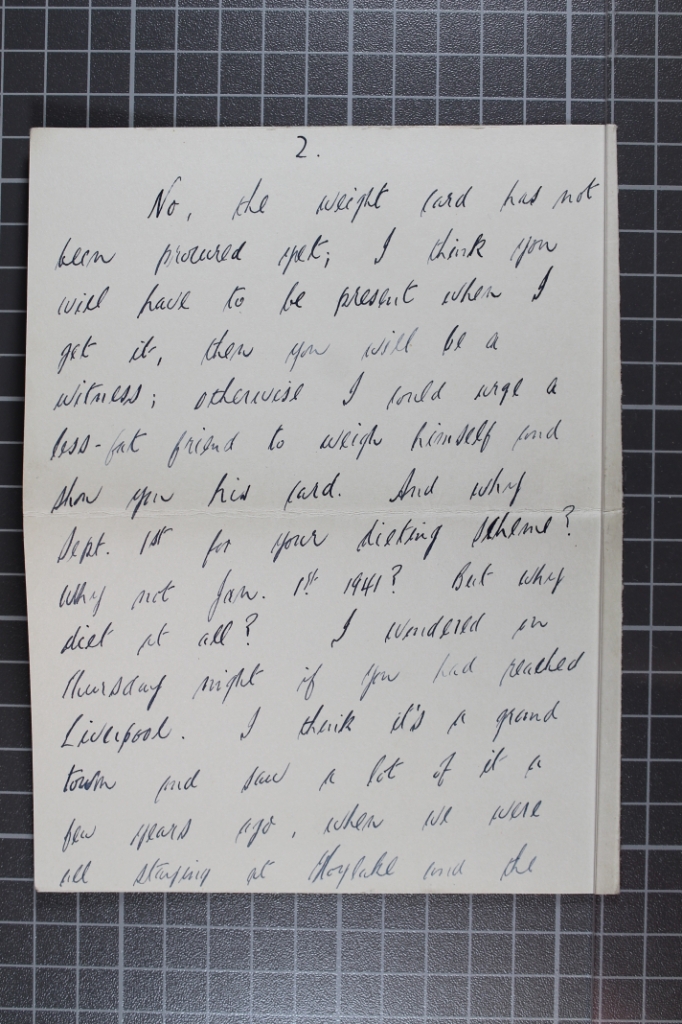 2.
No, the weight card has not
been procured yet; I think you
will have to be present when I
get it, then you will be a
witness; otherwise I could urge a
less-fat friend to weigh himself and
show you his card. And why
Sept. 1st for your dieting scheme?
Why not Jan. 1st 1941? But why
diet at all? I wondered on
Thursday night if you had reached
Liverpool. I think it's a grand
town and saw a lot of it a
few years ago, when we were
all staying at Hoylake and the